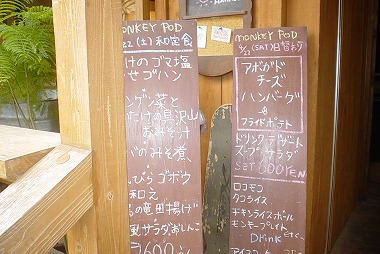 MONKEY POD
22 (土) 和定食
けのゴマ塩
せゴハン
ンゲン菜と
たけの具沢山
おみそ汁
バのみそ煮
んぴらゴボウ
和え
の竜田揚げ
サラダおしんこ
MONKEY POD
(SAT)
アボガド
チーズ
ハンバーグ
&
フライドポテト
ドリンク デザート
スープ サラダ
SET
YEN
ロコモコ
タコライス
チキンライスボール
モンキープレイト
etc
DRINK